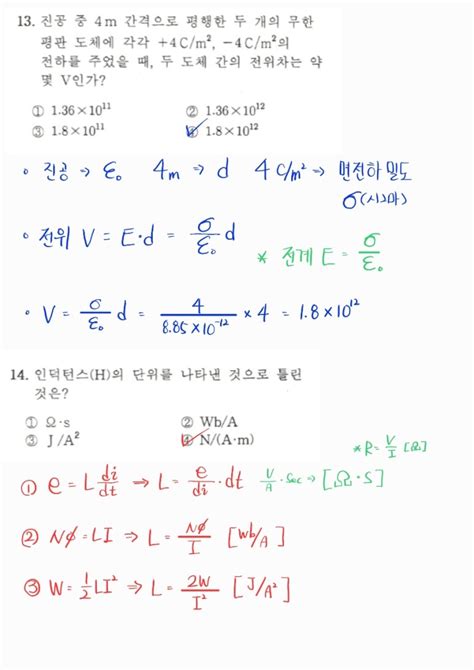 13. 진공 중 4m 간격으로 평행한 두 개의 무한
평판 도체에 각각 +4C/m², -4C/m²의
전하를 주었을 때, 두 도체 간의 전위차는 약
몇 V인가?
① 1.36×10¹¹ ② 1.36×10¹²
③ 1.8×10¹¹ ④ 1.8×10¹²
• 진공 → ε₀ 4m → d 4 C/m² → 면전하 밀도
σ(시그마)
• 전위 V = E·d = σ/ε₀ d
* 전계 E = σ/ε₀
• V = σ/ε₀ d = 4/8.85×10⁻¹² × 4 = 1.8×10¹²
14. 인덕턴스(H)의 단위를 나타낸 것으로 틀린
것은?
① Ω·s ② Wb/A
③ J/A² ④ N/(A·m)
* R = V/I [Ω]
① e = L di/dt ⇒ L = e/di · dt V/A · sec ⇒ [Ω·S]
② Nφ = LI ⇒ L = Nφ/I [Wb/A]
③ W = 1/2 LI² ⇒ L = 2W/I² [J/A²]